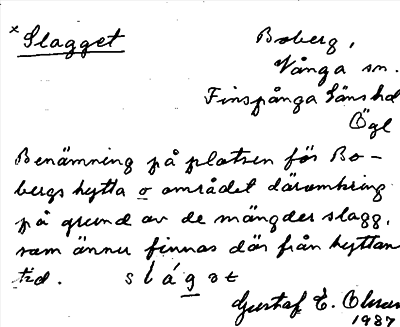 x Slagget
Boberg,
Vånga sn.
Finspånga läns hd
Ögl
Benämning på platsen för Bo-
bergs hytta o området däromkring
på grund av de mängder slagg,
som ännu finnas där från hyttans
tid. slágət
Gustaf E. Olsson
1987